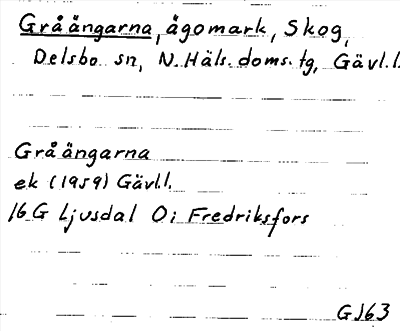 Gråängarna, ägomark, Skog,
Delsbo sn, N. Häls. doms. tg, Gävl.l.
Gråängarna
ek (1959) Gävl.l.
16 G Ljusdal O i Fredriksfors
G163